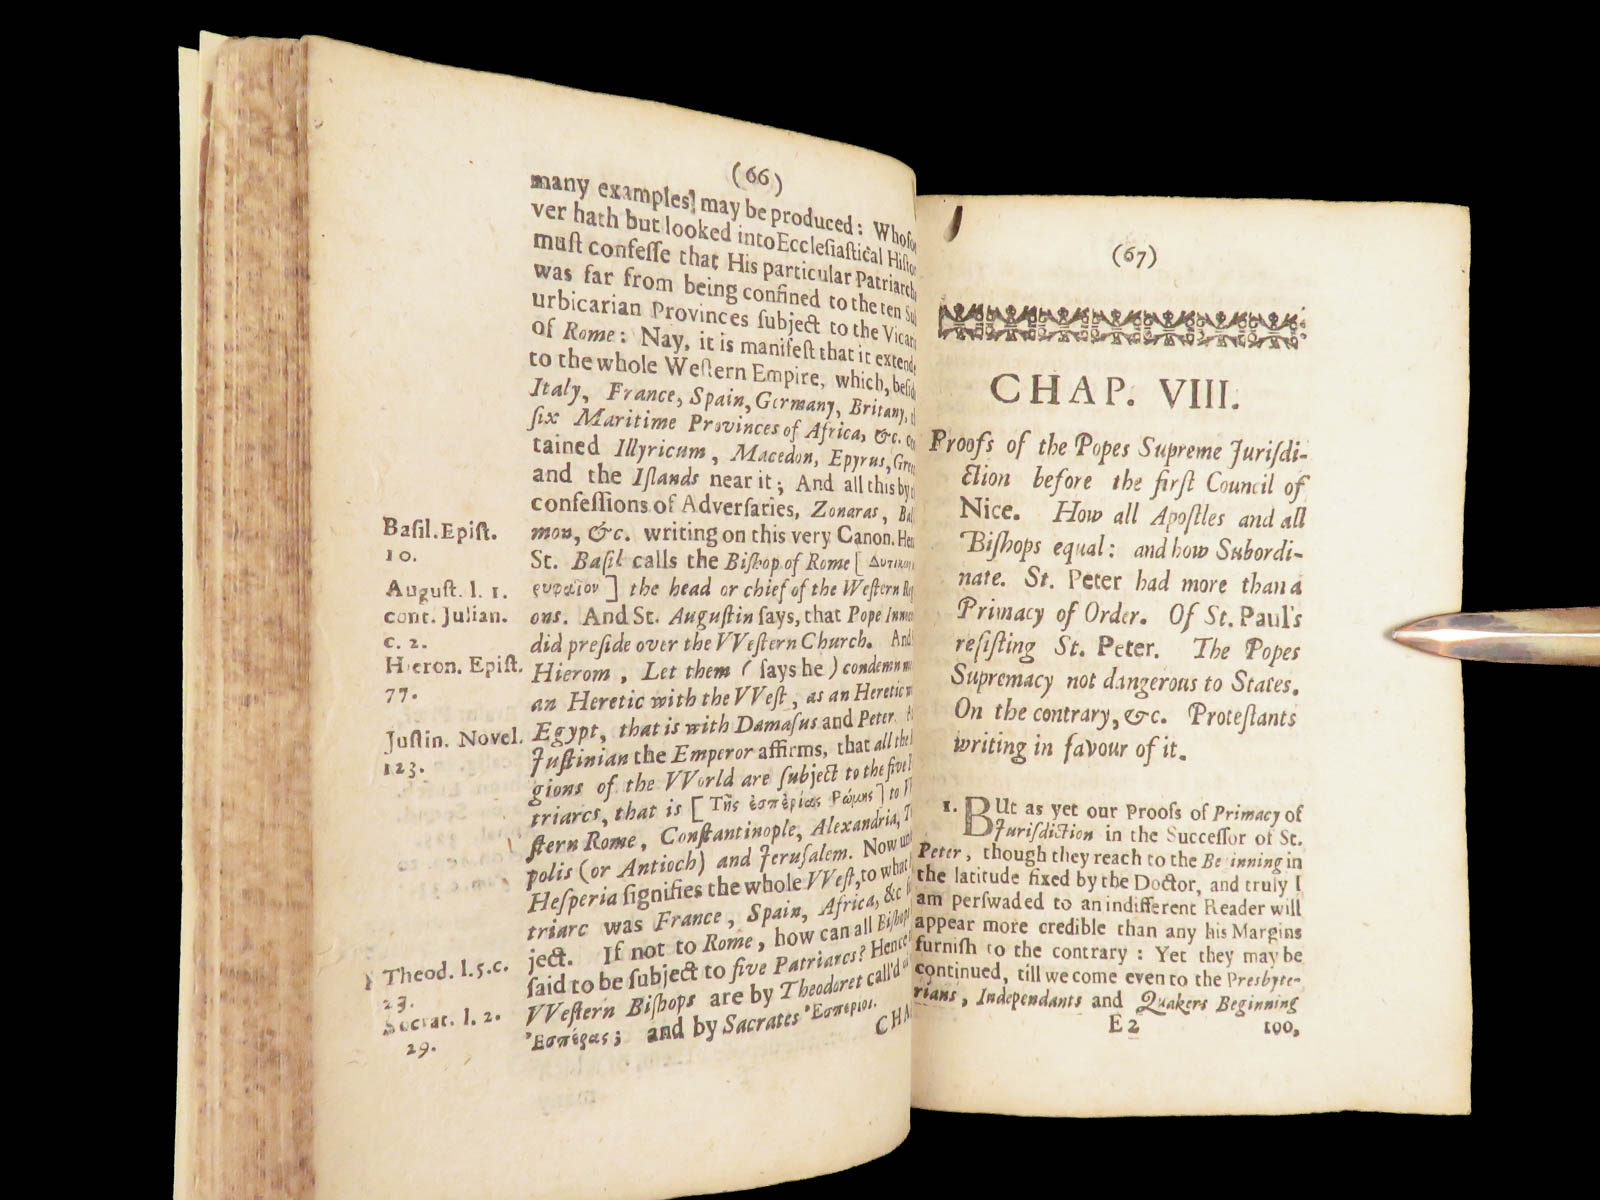 (66)
many examples may be produced: Whoſoe
ver hath but looked into Eccleſiaſtical Hiſtor
muſt confeſſe that His particular Patriarch
was far from being confined to the ten Sub
urbicarian Provinces ſubject to the Vicar
of Rome: Nay, it is manifeſt that it extend
to the whole Weſtern Empire, which, beſid
Italy, France, Spain, Germany, Britany, th
ſix Maritime Provinces of Africa, &c. con
tained Illyricum, Macedon, Epyrus, Gree
and the Iſlands near it; And all this by
confeſſions of Adverſaries, Zonaras, Bal
mon, &c. writing on this very Canon. Hen
St. Baſil calls the Biſhop of Rome [
] the head or chief of the Weſtern Regi
ons. And St. Auguſtin ſays, that Pope Innoc
did preſide over the VVeſtern Church. And
Hierom, Let them (ſays he) condemn me
an Heretic with the VVeſt, as an Heretic
Egypt, that is with Damaſus and Peter.
Juſtinian the Emperor affirms, that all the
gions of the VVorld are ſubject to the five
triarcs, that is [Τῆς ἑσπέρίας Ρώμης] to
ſtern Rome, Conſtantinople, Alexandria, T
polis (or Antioch) and Jeruſalem. Now
Heſperia ſignifies the whole VVeſt, to what
triarc was France, Spain, Africa, &c
ject. If not to Rome, how can all Biſhops
ſaid to be ſubject to five Patriarcs? Hence
VVeſtern Biſhops are by Theodoret call'd
Ἑσπέρας; and by Sacrates Ἑσπερίοι.
CHA
Baſil. Epiſt.
10.
Auguſt. l. 1.
cont. Julian.
c. 2.
Hieron. Epiſt.
77.
Juſtin. Novel.
123.
Theod. l. 5. c.
23.
Socrat. l. 2.
29.
(67)
CHAP. VIII.
Proofs of the Popes Supreme Juriſdi-
ction before the firſt Council of
Nice. How all Apoſtles and all
Biſhops equal: and how Subordi-
nate. St. Peter had more than a
Primacy of Order. Of St. Paul's
reſiſting St. Peter. The Popes
Supremacy not dangerous to States.
On the contrary, &c. Proteſtants
writing in favour of it.
1. BUt as yet our Proofs of Primacy of
Juriſdiction in the Succeſſor of St.
Peter, though they reach to the Beginning in
the latitude fixed by the Doctor, and truly I
am perſwaded to an indifferent Reader will
appear more credible than any his Margins
furniſh to the contrary: Yet they may be
continued, till we come even to the Presbyte-
rians, Independants and Quakers Beginning
E 2
100,